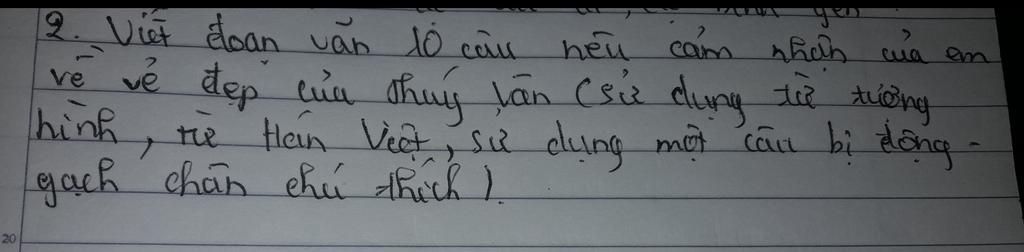 2. Viết đoạn văn 10 câu nêu cảm nhận của em
về vẻ đẹp của Thúy Vân (sử dụng từ tượng
hình, từ Hán Việt, sử dụng một câu bị động -
gạch chân chú thích).
20